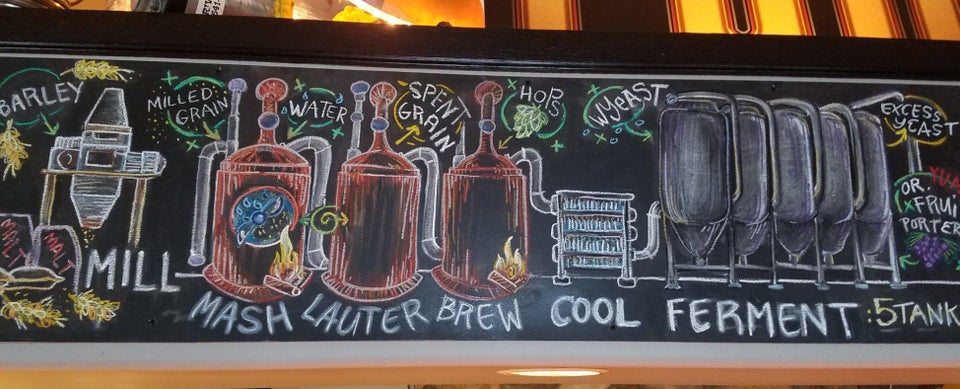 BARLEY
MALT
MALT
MILL
MILLED
GRAIN
WATER
MASH
SPENT
GRAIN
LAUTER
HOPS
BREW
COOL
WYEAST
FERMENT :5 TANK
EXCESS
YEAST
OR.
FRUI
PORTER